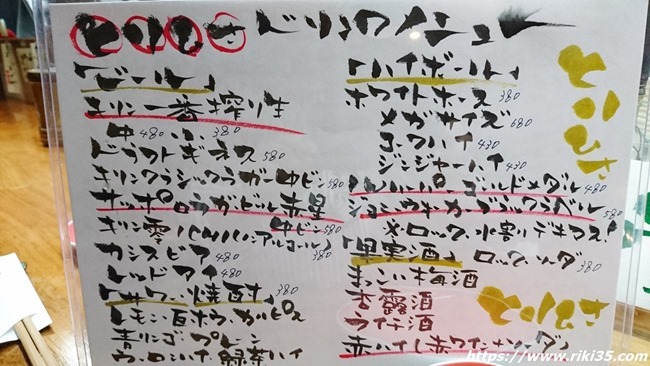 とりひさ ドリンクメニュー
「ビール」
キリン一番搾り生
中480 小380
ドラフトギネス580
キリンクラシックラガー中ビン580
サッポロラガービール赤星
中ビン580
キリン零ICHI(ノンアルコール)380
カシスビア480
レッドアイ480
「サワー・焼酎」380
レモン・巨峰・カルピス
青リンゴ・プレーン
ウーロンハイ・緑茶ハイ
「ハイボール」
ホワイトホース380
メガサイズ680
コークハイ430
ジンジャーハイ430
ハイパーゴールドメダル480
ジョニーウォーカーブラックラベル580
※ロック、水割りデキマス!
「果実酒」ロック・ソーダ380
まっこい梅酒
杏露酒
ライチ酒
赤ハイ(赤ワインソーダ)
とりひさ
とりひさ
https://www.riki35.com